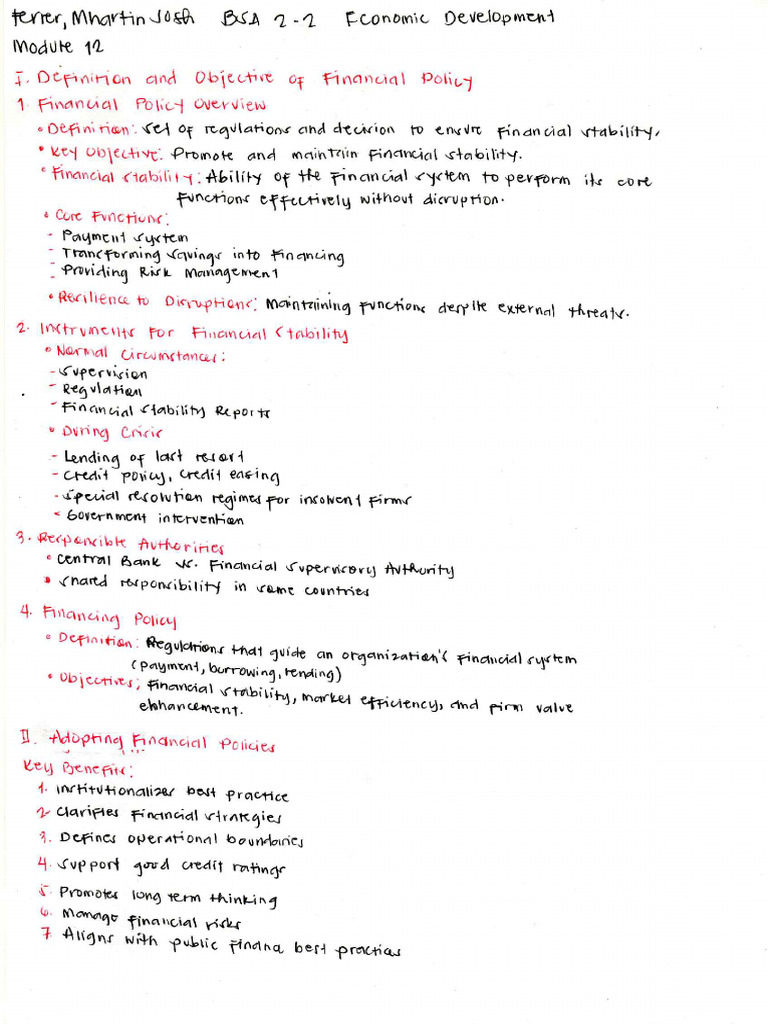 Ferrer, Mhartin Josh BSA 2-2 Economic Development
Module 12
I. Definition and Objective of Financial Policy
1. Financial Policy Overview
• Definition: Set of regulations and decision to ensure financial stability.
• Key Objective: Promote and maintain financial stability.
• Financial Stability: Ability of the financial system to perform its core
functions effectively without disruption.
• Core Functions:
- Payment system
- Transforming savings into financing
- Providing Risk Management
• Resilience to Disruptions: Maintaining functions despite external threats.
2. Instruments for Financial Stability
• Normal Circumstances:
- Supervision
- Regulation
- Financial Stability Reports
• During Crisis
- Lending of last resort
- Credit policy, credit easing
- Special resolution regimes for insolvent firms
- Government intervention
3. Responsible Authorities
• Central Bank vs. Financial Supervisory Authority
• Shared responsibility in some countries
4. Financing Policy
• Definition: Regulations that guide an organization's financial system
(payment, borrowing, lending)
• Objectives; Financial stability, market efficiency, and firm value
enhancement.
II. Adopting Financial Policies
Key Benefits:
1. Institutionalizes best practice
2 Clarifies financial strategies
3. Defines operational boundaries
4. Support good credit ratings
5. Promotes long term thinking
6. Manage financial risks
7 Aligns with public financa best practices